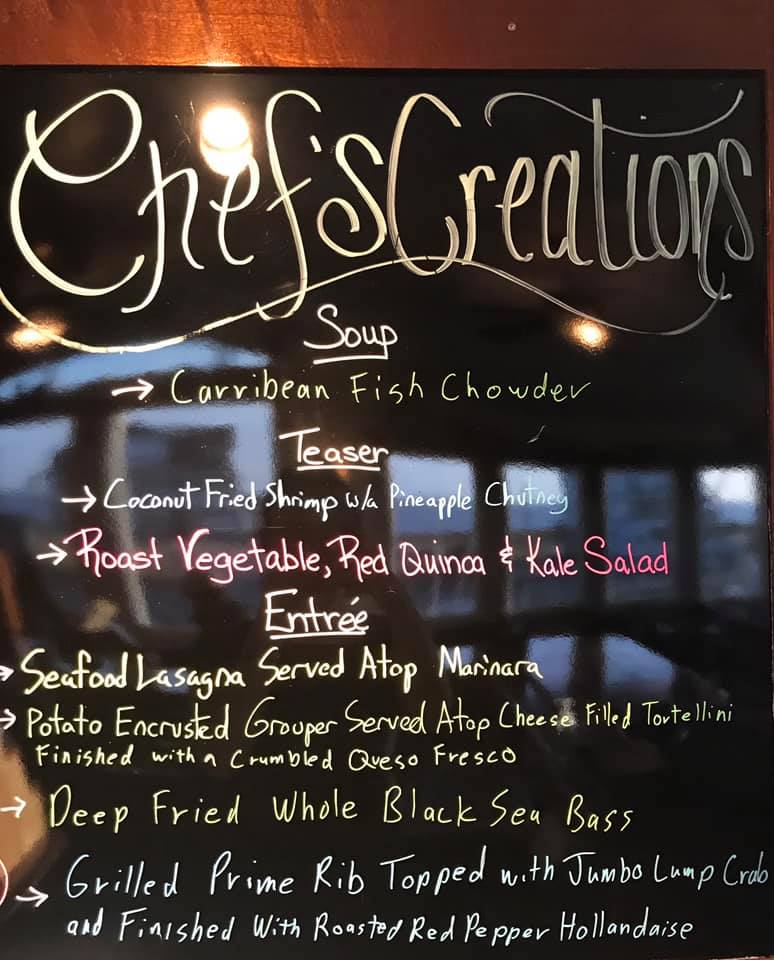 Chef's Creations
Soup
→ Carribean Fish Chowder
Teaser
→ Coconut Fried Shrimp w/a Pineapple Chutney
→ Roast Vegetable, Red Quinoa & Kale Salad
Entrée
→ Seafood Lasagna Served Atop Marinara
→ Potato Encrusted Grouper Served Atop Cheese Filled Tortellini
Finished with a Crumbled Queso Fresco
→ Deep Fried Whole Black Sea Bass
→ Grilled Prime Rib Topped with Jumbo Lump Crab
and Finished With Roasted Red Pepper Hollandaise